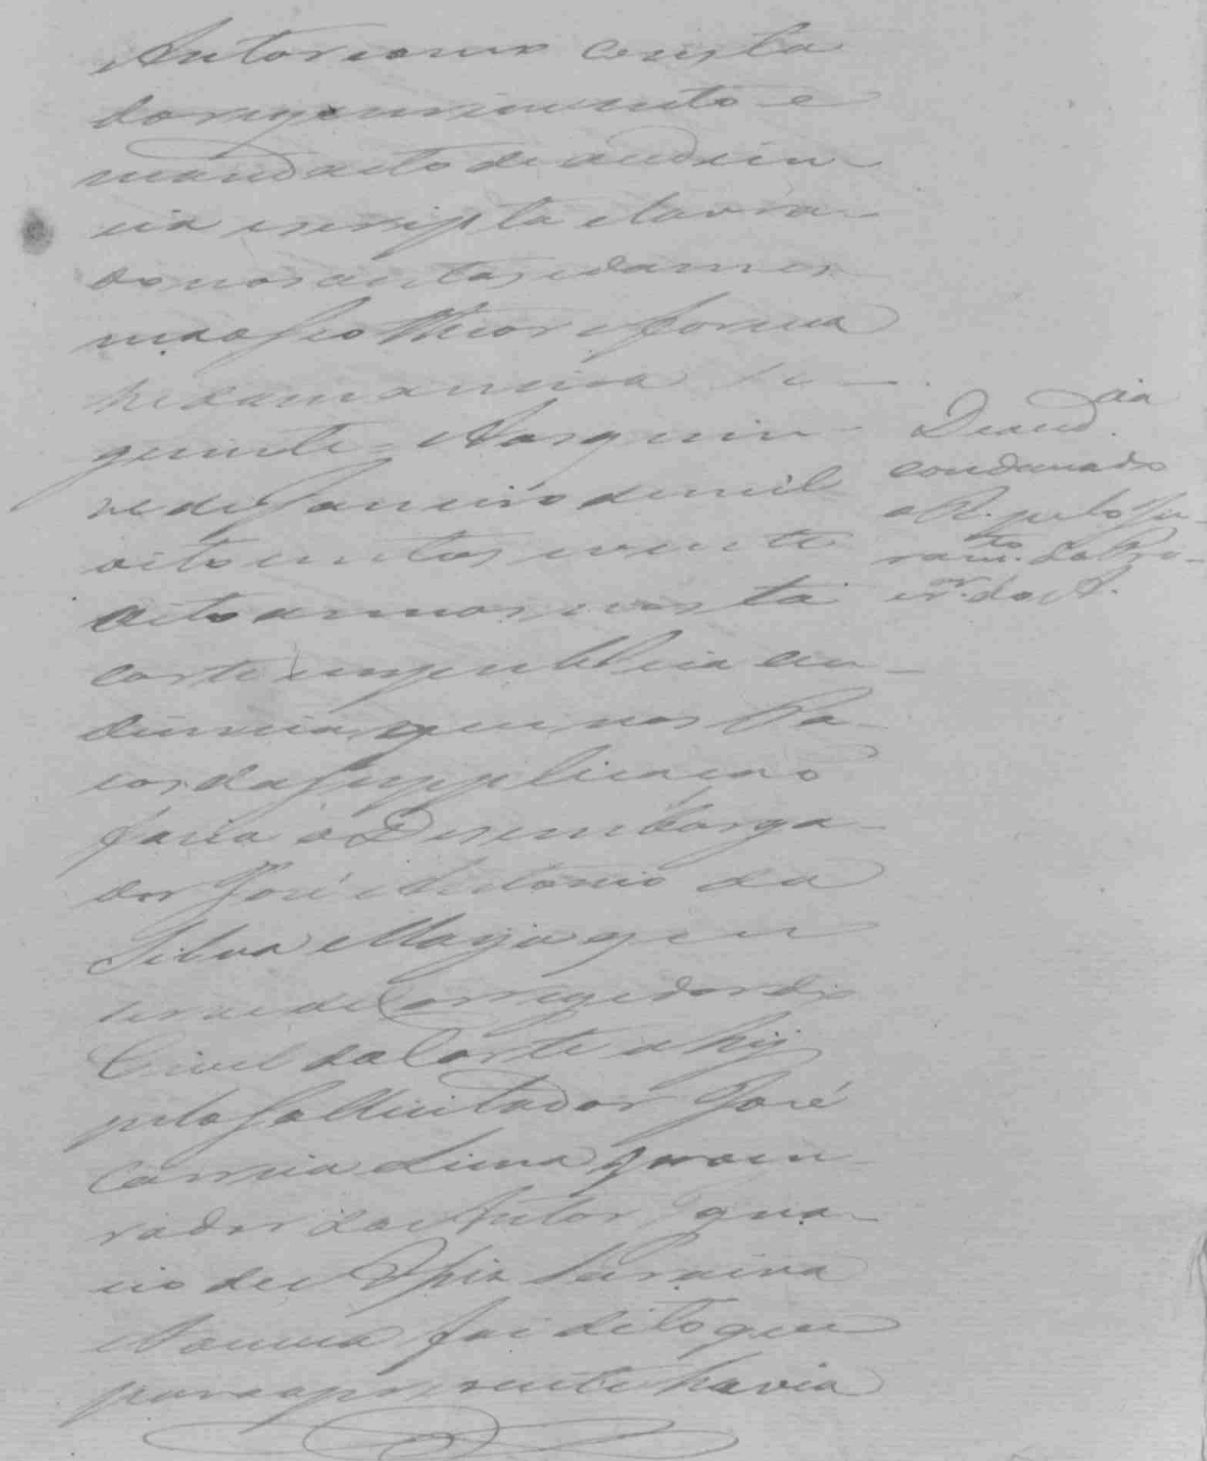 Autor como consta
do requerimento e
mandacto de audien-
cia escripta e lavra-
do nos autos e damos
ma o seo theor e forma
he da maneira se-
guinte = Aos quin-
ze de Janeiro de mil
oito centos e vinte
oito annos nesta
Corte em publica au-
diencia que nos Pa-
ços da Supplicacaõ
fazia o Desembarga-
dor José Antonio da
Silva Maya que
serve de Corregedor do
Civel da Corte ahy
pelo Sollicitador José
Correia Lima procu-
rador do Autor Igna-
cio de
foi dito que
para a presente havia
De aud.cia
condemnado
o R. pelo ju-
ram.to do Pro-
c.or do A.